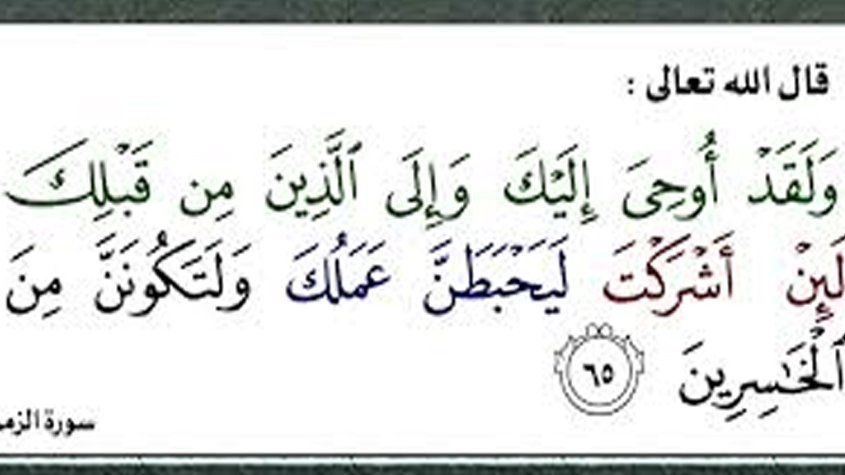 قال الله تعالى :
وَلَقَدْ أُوحِىَ إِلَيْكَ وَإِلَى ٱلَّذِينَ مِن قَبْلِكَ
لَئِنْ أَشْرَكْتَ لَيَحْبَطَنَّ عَمَلُكَ وَلَتَكُونَنَّ مِنَ
ٱلْخَـٰسِرِينَ ٦٥
سورة الزمر